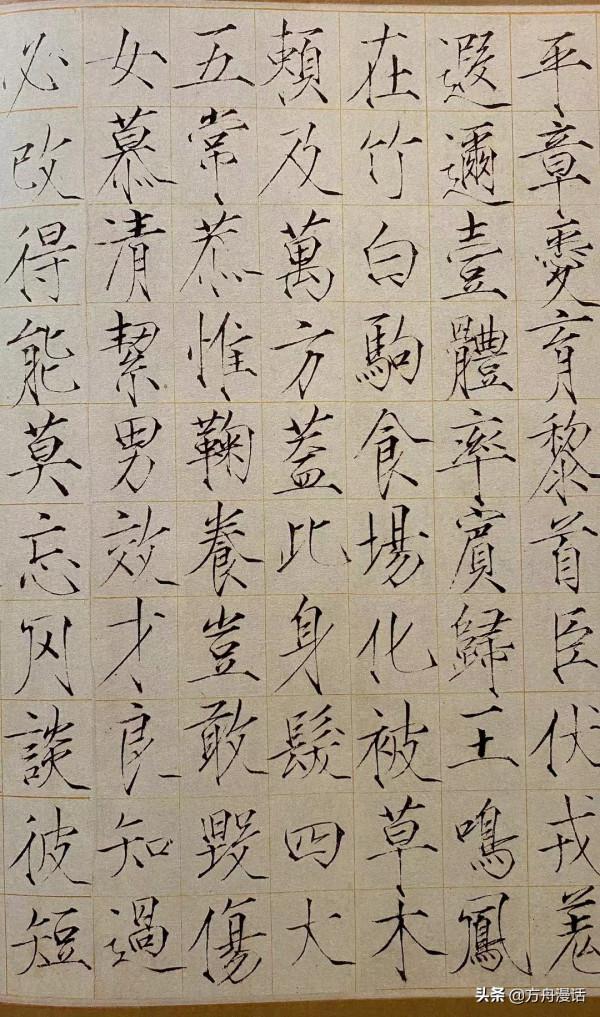 平章愛育黎首臣伏戎羌
遐邇壹體率賓歸王鳴鳳
在竹白駒食場化被草木
賴及萬方蓋此身髮四大
五常恭惟鞠養豈敢毀傷
女慕清絜男效才良知過
必改得能莫忘罔談彼短
头条 @方舟漫话